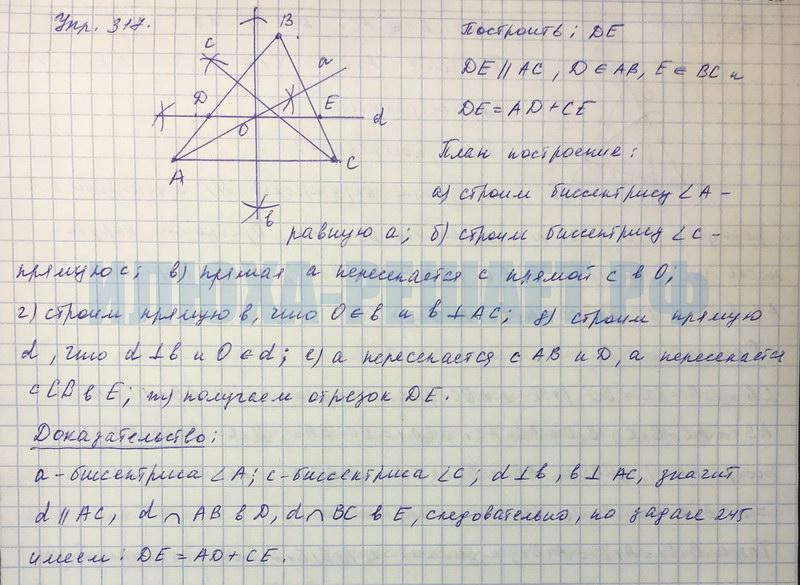 Упр. 317.
Построить: DE
DE || AC, D ∈ AB, E ∈ BC и
DE = AD + CE
План построение:
а) строим биссектрису ∠A –
равную a; б) строим биссектрису ∠C –
прямую c; в) прямая a пересекается с прямой c в O;
г) строим прямую b, что O ∈ b и b ⊥ AC; д) строим прямую
d, что d ⊥ b и O ∈ d; е) a пересекается с AB и D, a пересекается
с CB в E; ж) получаем отрезок DE.
Доказательство:
a - биссектриса ∠A; c - биссектриса ∠C; d ⊥ b, b ⊥ AC, значит
d || AC, d ∩ AB в D, d ∩ BC в E, следовательно, по задаче 245
имеем: DE = AD + CE.
B
c
a
D
E
d
O
A
C
b